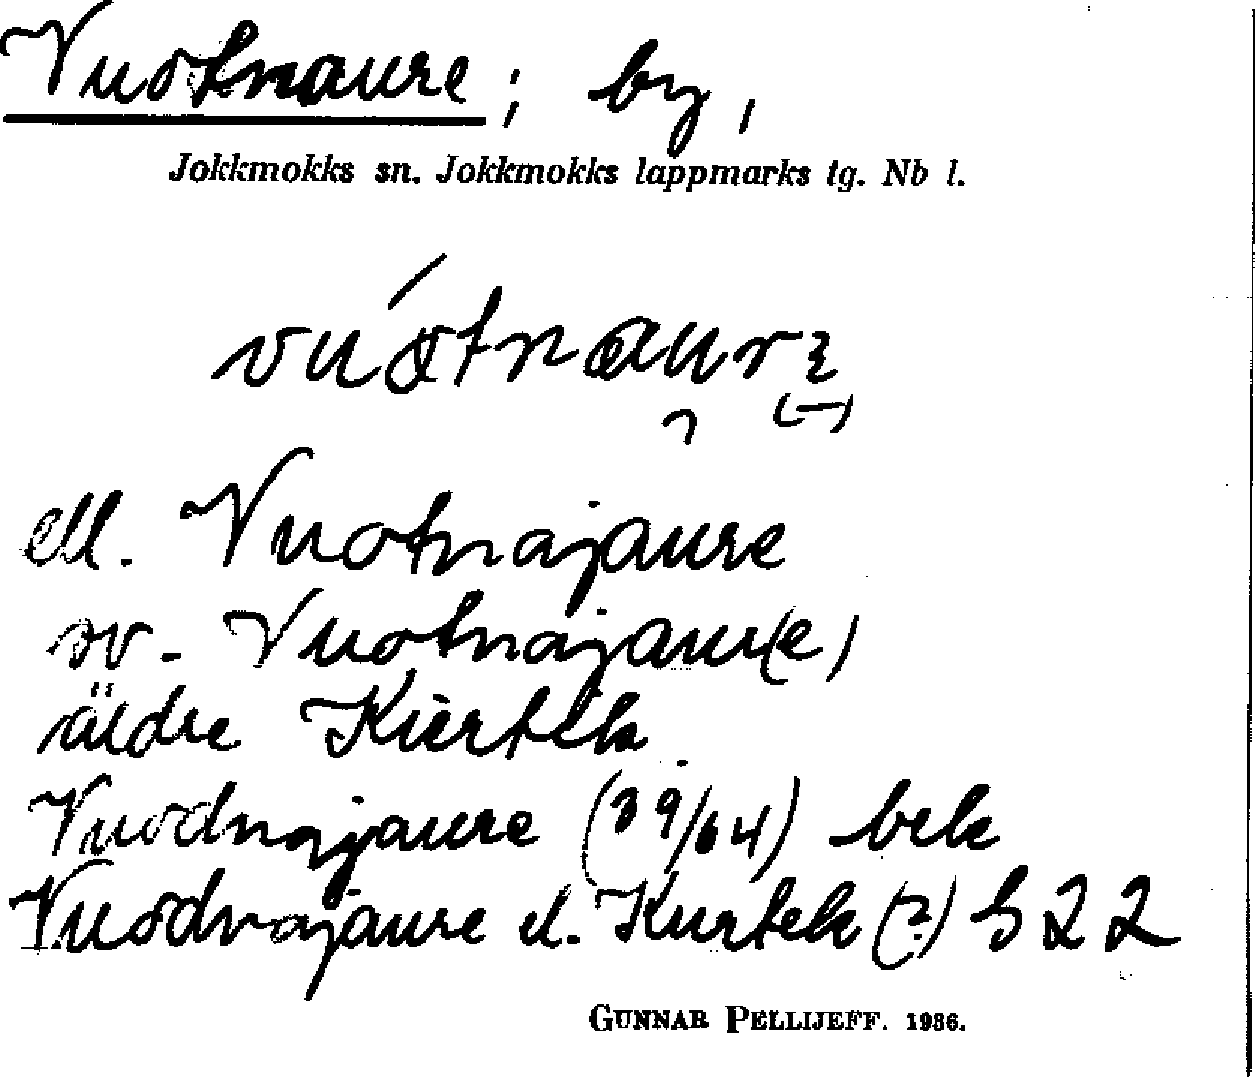 Vuotnaure; by,
Jokkmokks sn. Jokkmokks lappmarks tg. Nb l.
vuotnaure
ell. Vuotnajaure
sv. Vuotnajaur(e)
äldre Kiertek
Vuodnajaure (39/64) bek
Vuodnajaure el. Kurtek (?) S 22
GUNNAR PELLIJEFF. 1936.